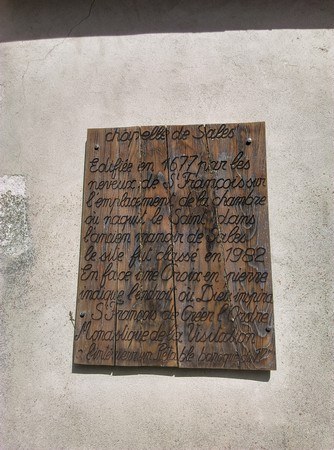 chapelle de Sales
Edifiée en 1677 par les
neveux, de St François sur
l'emplacement de la chambre
où naquit le Saint dans
l'ancien manoir de Sales
le site fut classé en 1982
En face une Croix en pierre
indique l'endroit où Dieu inspira
St François de Créer l'Ordre
Monastique de la Visitation
l'intérieur un Retable baroque du